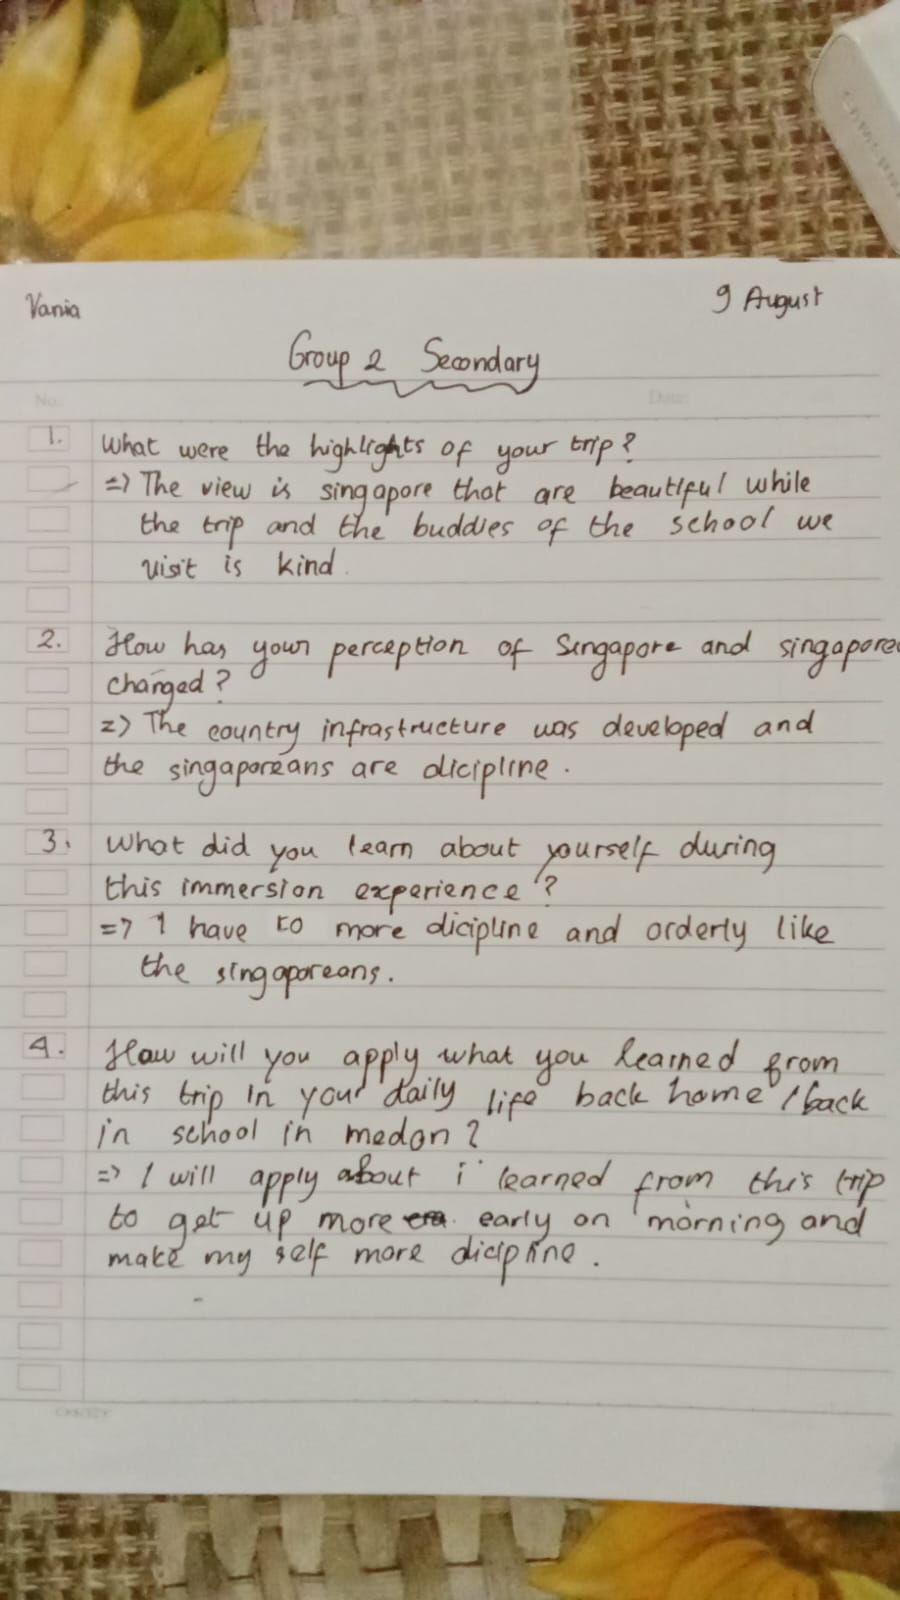 Vania
9 August
Group 2 Secondary
No.
Date:
1. What were the highlights of your trip?
=> The view is singapore that are beautiful while
the trip and the buddies of the school we
visit is kind.
2. How has your perception of Singapore and singapore
changed?
=> The country infrastructure was developed and
the singaporeans are dicipline.
3. What did you learn about yourself during
this immersion experience?
=> I have to more dicipline and orderly like
the singaporeans.
4. How will you apply what you learned from
this trip in your daily life back home / back
in school in medan?
=> I will apply about i learned from this trip
to get up more early on morning and
make my self more dicipline.